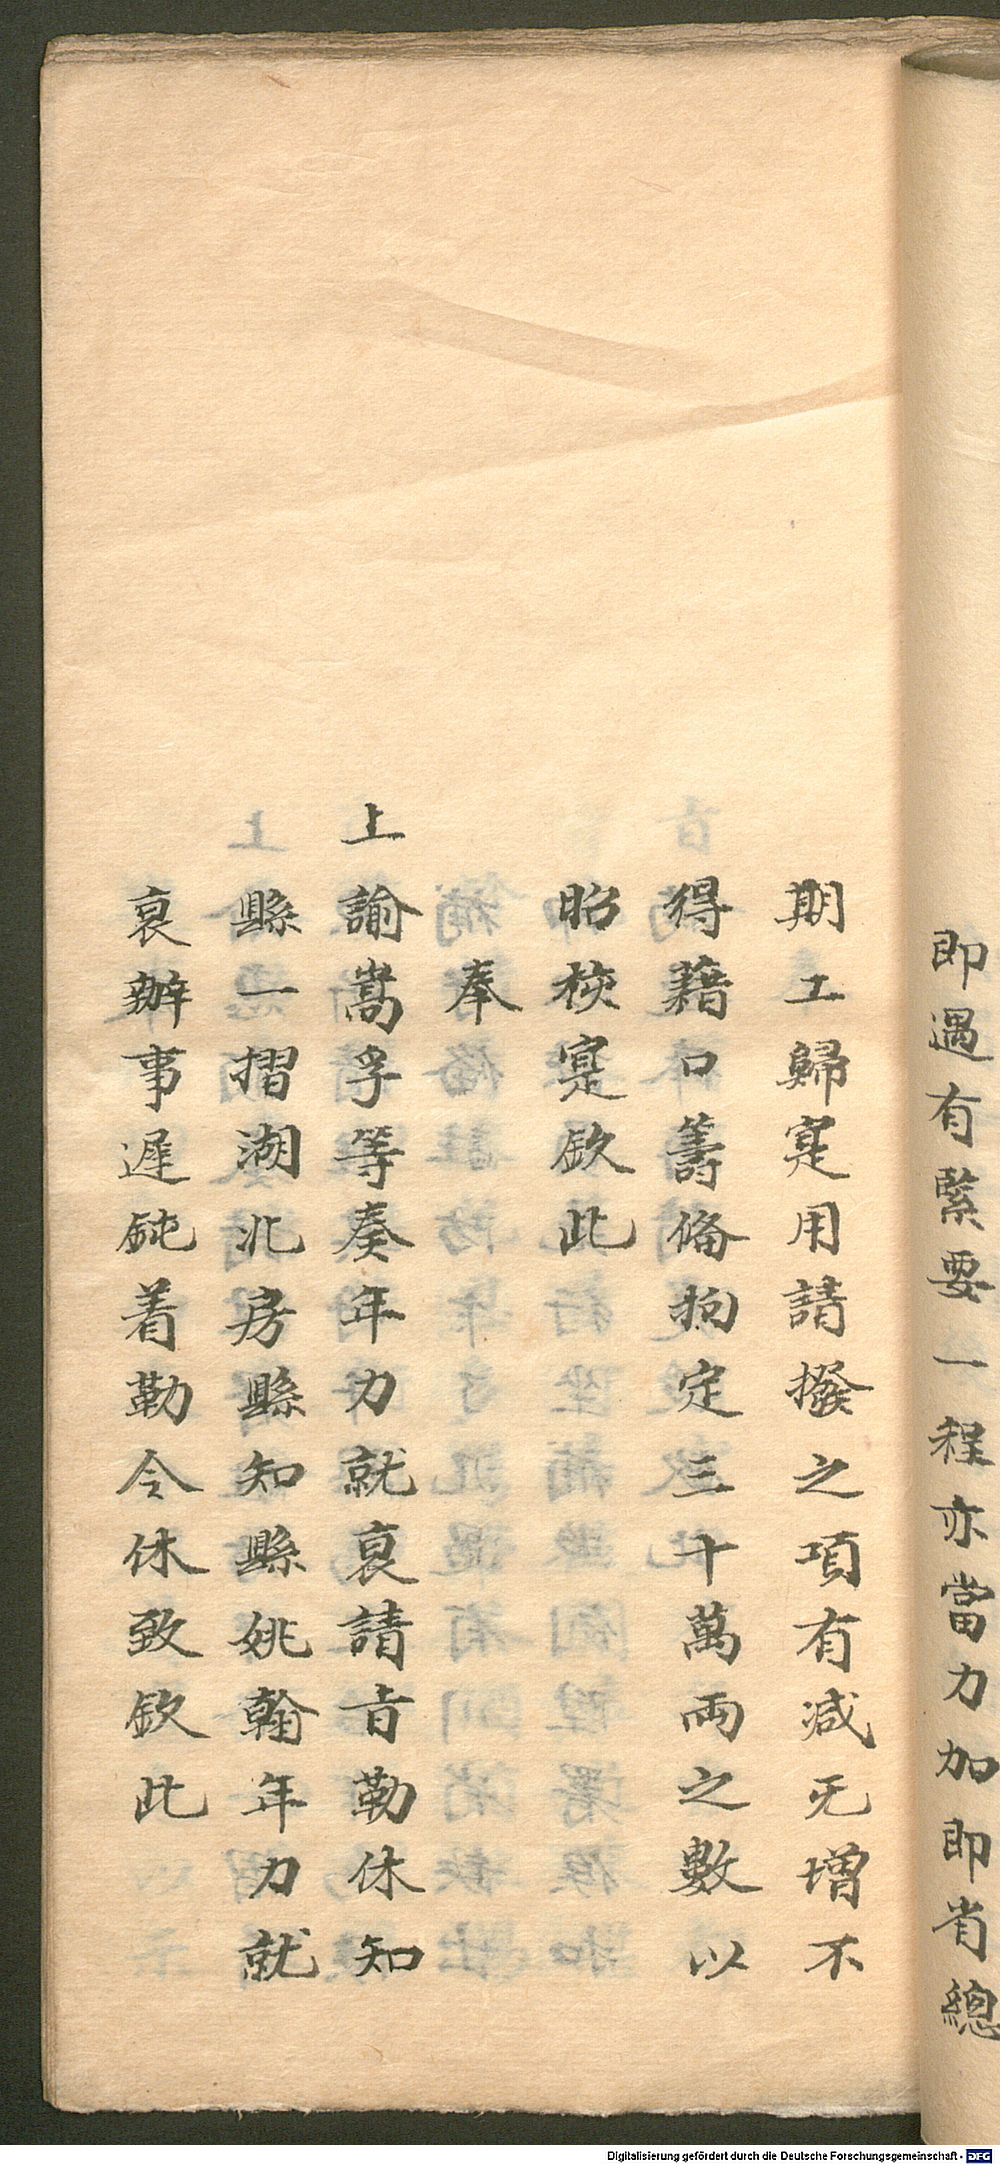 即遇有緊要一程亦當力加即省總
期工歸寔用請撥之項有減无增不
得藉口籌偹拘定三十萬兩之數以
昭核寔欽此
奉
上諭嵩孚等奏年力就衰請㫖勒休知
縣一摺湖北房縣知縣姚翰年力就
衰辦事遲鈍着勒令休致欽此
Digitalisierung gefördert durch die Deutsche Forschungsgemeinschaft - DFG